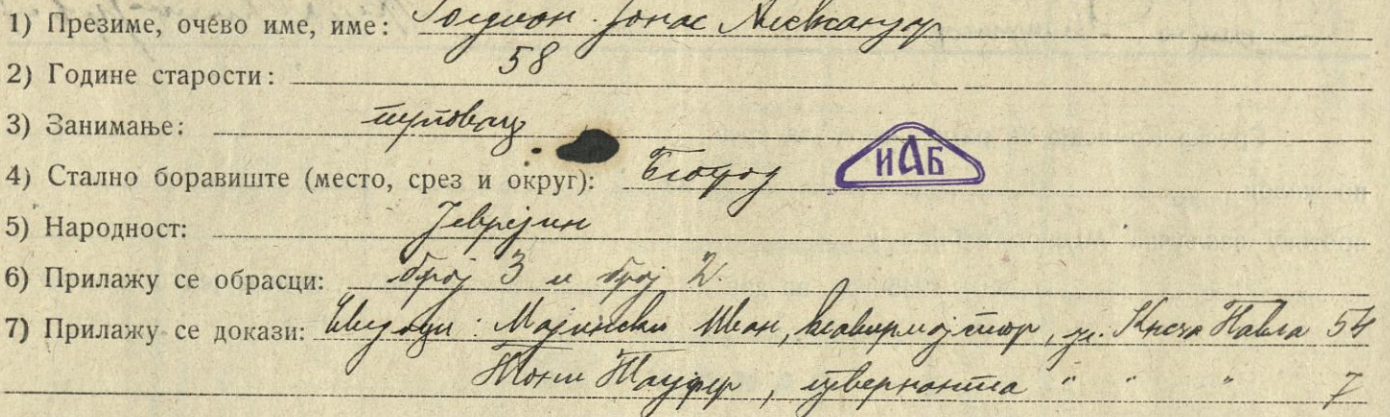 1) Презиме, очево име, име: Голдман Јонас Александар
2) Године старости: 58
3) Занимање: трговац
4) Стално боравиште (место, срез и округ): Београд
ИАБ
5) Народност: Јеврејин
6) Прилажу се обрасци: број 3 и број 2.
7) Прилажу се докази: Сведоци: Мајински Иван, клавирмајстор, ул. Кнеза Павла 54
Тони Тауфер, гувернанта " " " 7